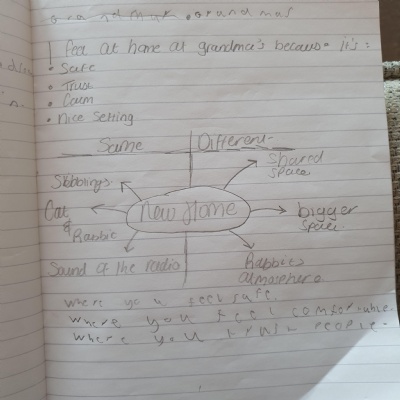 grandmas grandmas
I feel at home at grandma's because it's:
• Safe
• Trust
• Calm
• Nice Setting
Same Different
Shared
Space
Sibblings
New Home
Cat
&
Rabbit
bigger
Space
Sound of the radio
Rabbits
atmosphere
where you feel safe.
where you feel comfortable.
where you trust people.